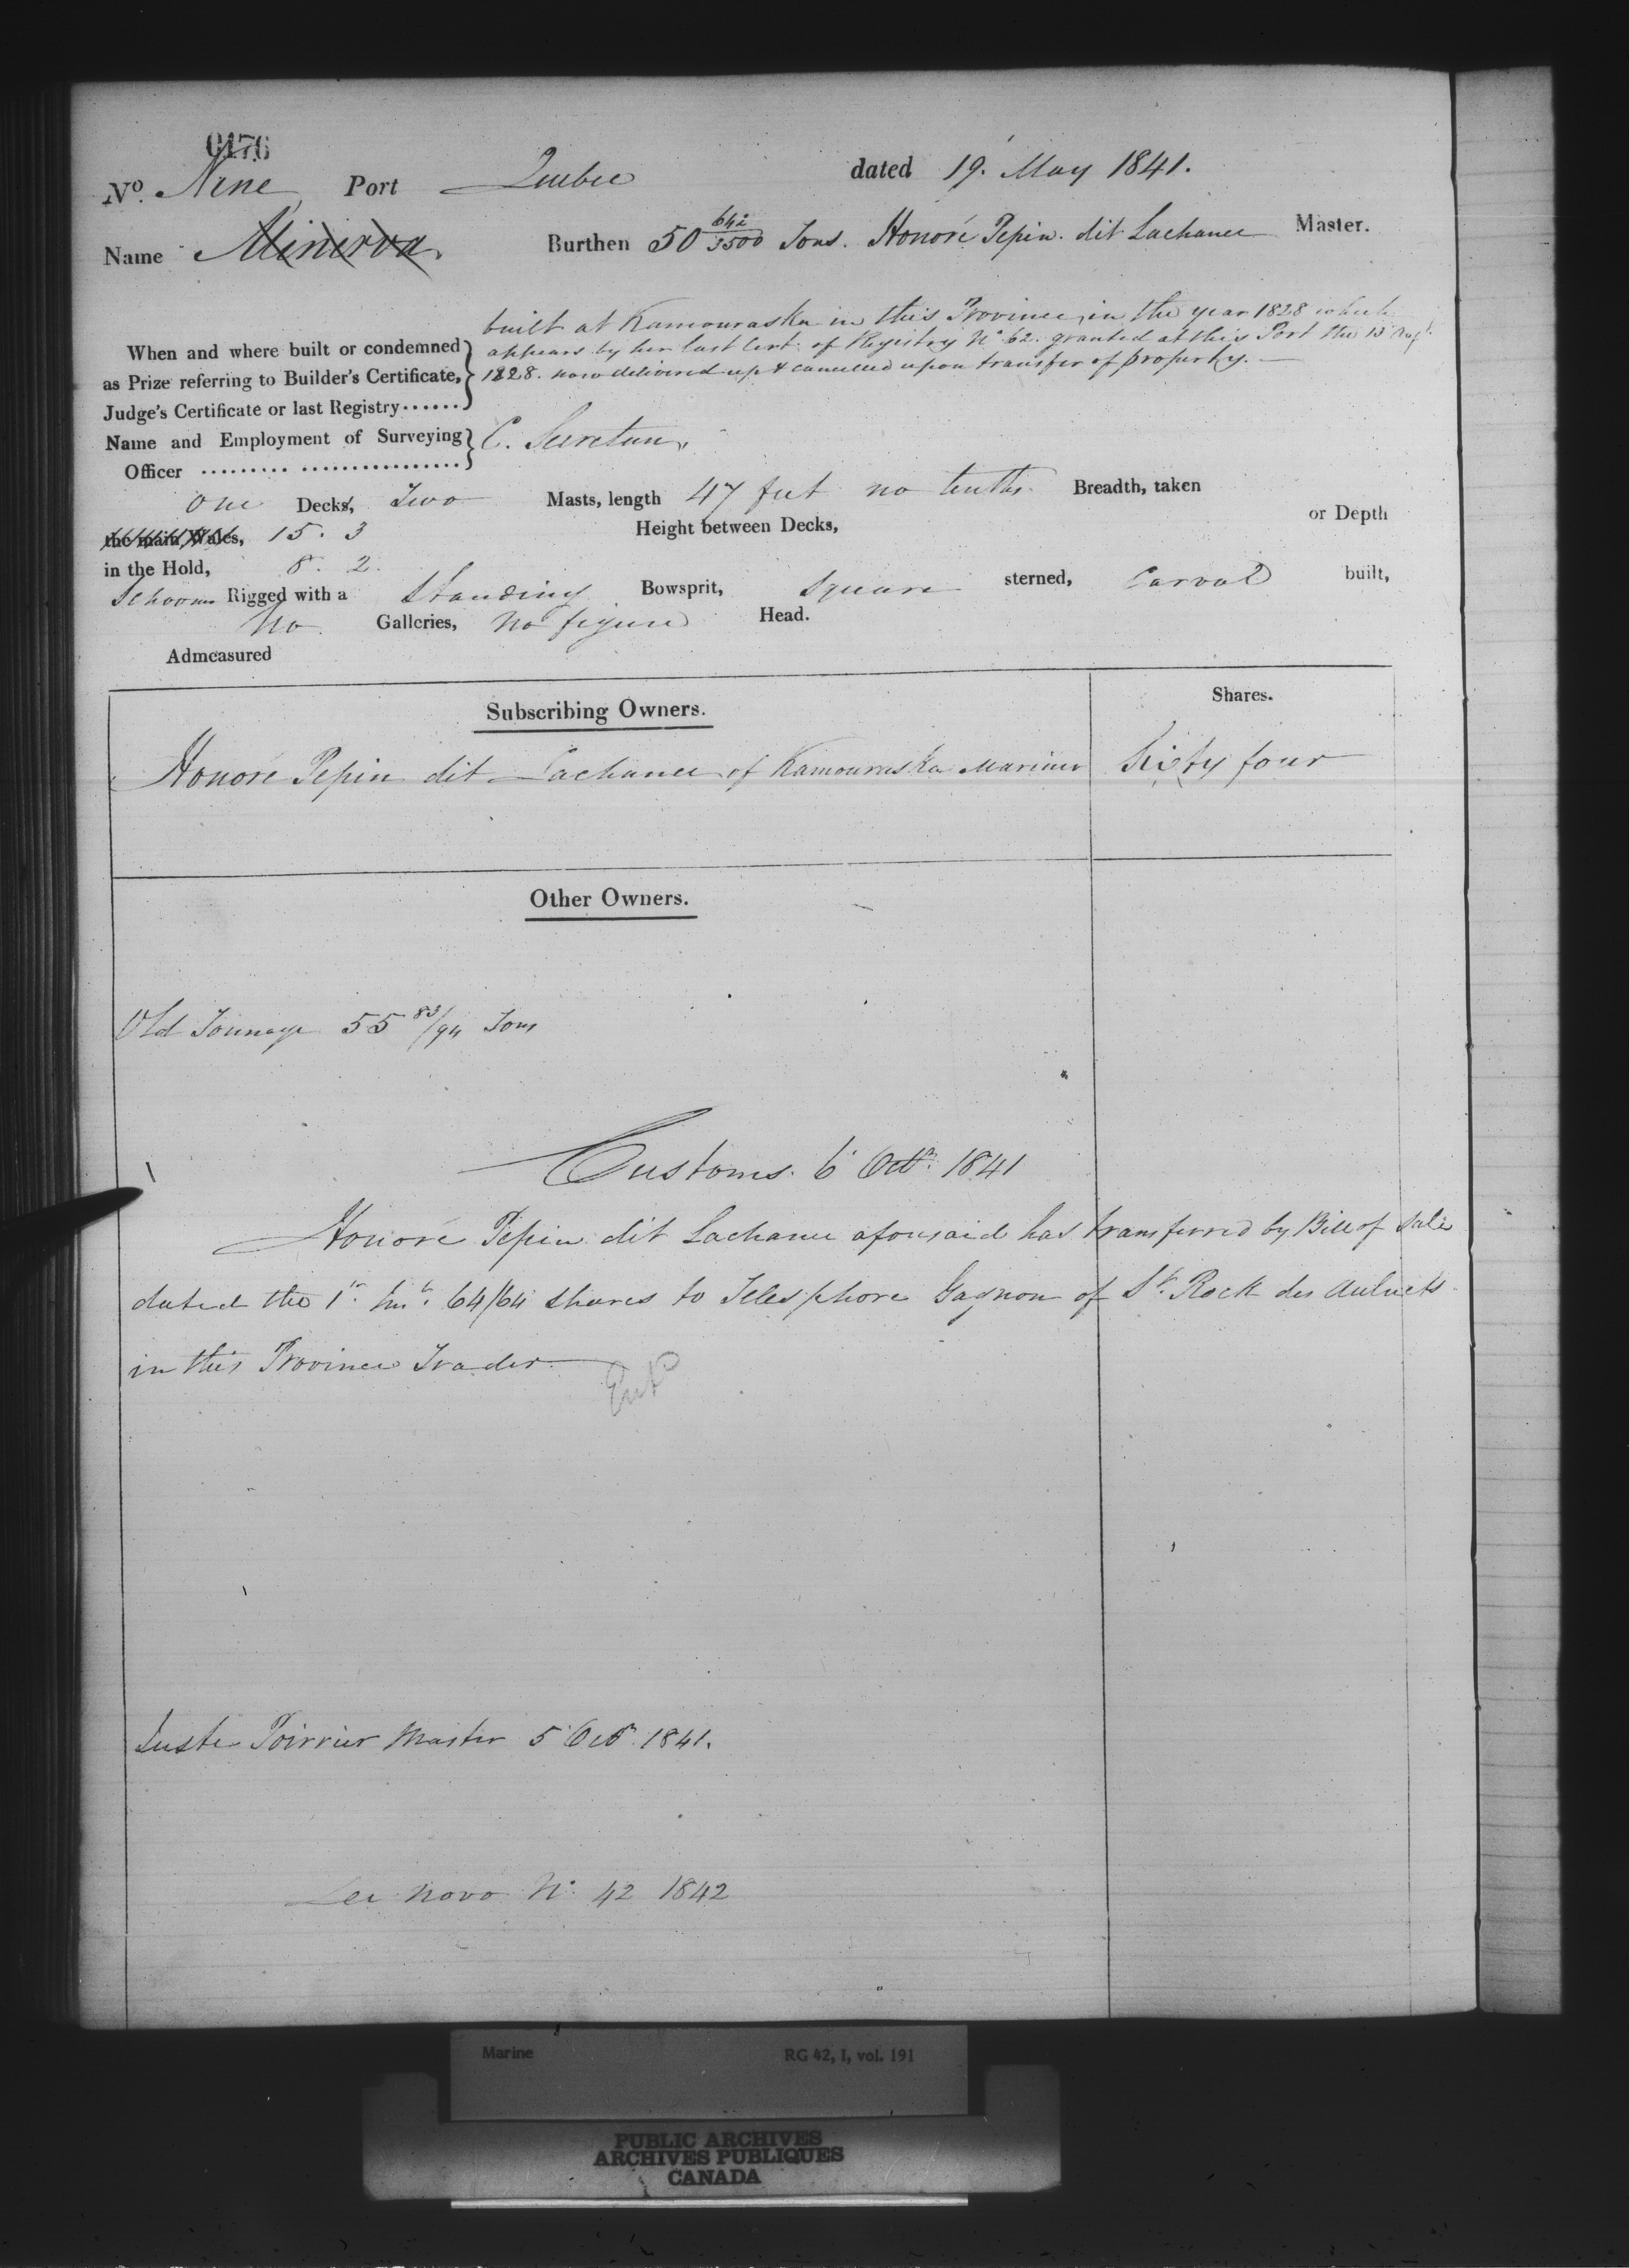 0176
No. Nine Port Quebec dated 19. May 1841.
Name Minerva. Burthen 50 642/3500 Tons. Honoré Pepin dit Lachance Master.
When and where built or condemned as Prize referring to Builder's Certificate, Judge's Certificate or last Registry......
built at Kamouraska in this Province, in the year 1828 which
appears by her last Cert. of Registry No 62. granted at this Port the 13 Augt.
1828. now delivered up & cancelled upon transfer of property.
Name and Employment of Surveying Officer ......... ................ C. Secretan.
One Decks, Two Masts, length 47 feet no tenths Breadth, taken
the main Wales, 15. 3 Height between Decks, or Depth
in the Hold, 8. 2.
Schooner Rigged with a Standing Bowsprit, Square sterned, Carvel built,
No Galleries, No figure Head.
Admeasured
Subscribing Owners. Shares.
Honoré Pepin dit Lachance of Kamouraska Mariner Sixty four
Other Owners.
Old Tonnage 55 83/94 Tons
Customs. 6 Octr. 1841
Honoré Pepin dit Lachance aforesaid has transferred by Bill of Sale
dated the 1st. Inst. 64/64 Shares to Telesphore Gagnon of St. Rock des Aulnets
in this Province Trader.
Entd
Juste Poirrier Master 5 Oct. 1841.
De Novo No. 42 1842
Marine RG 42, I, vol. 191
PUBLIC ARCHIVES
ARCHIVES PUBLIQUES
CANADA